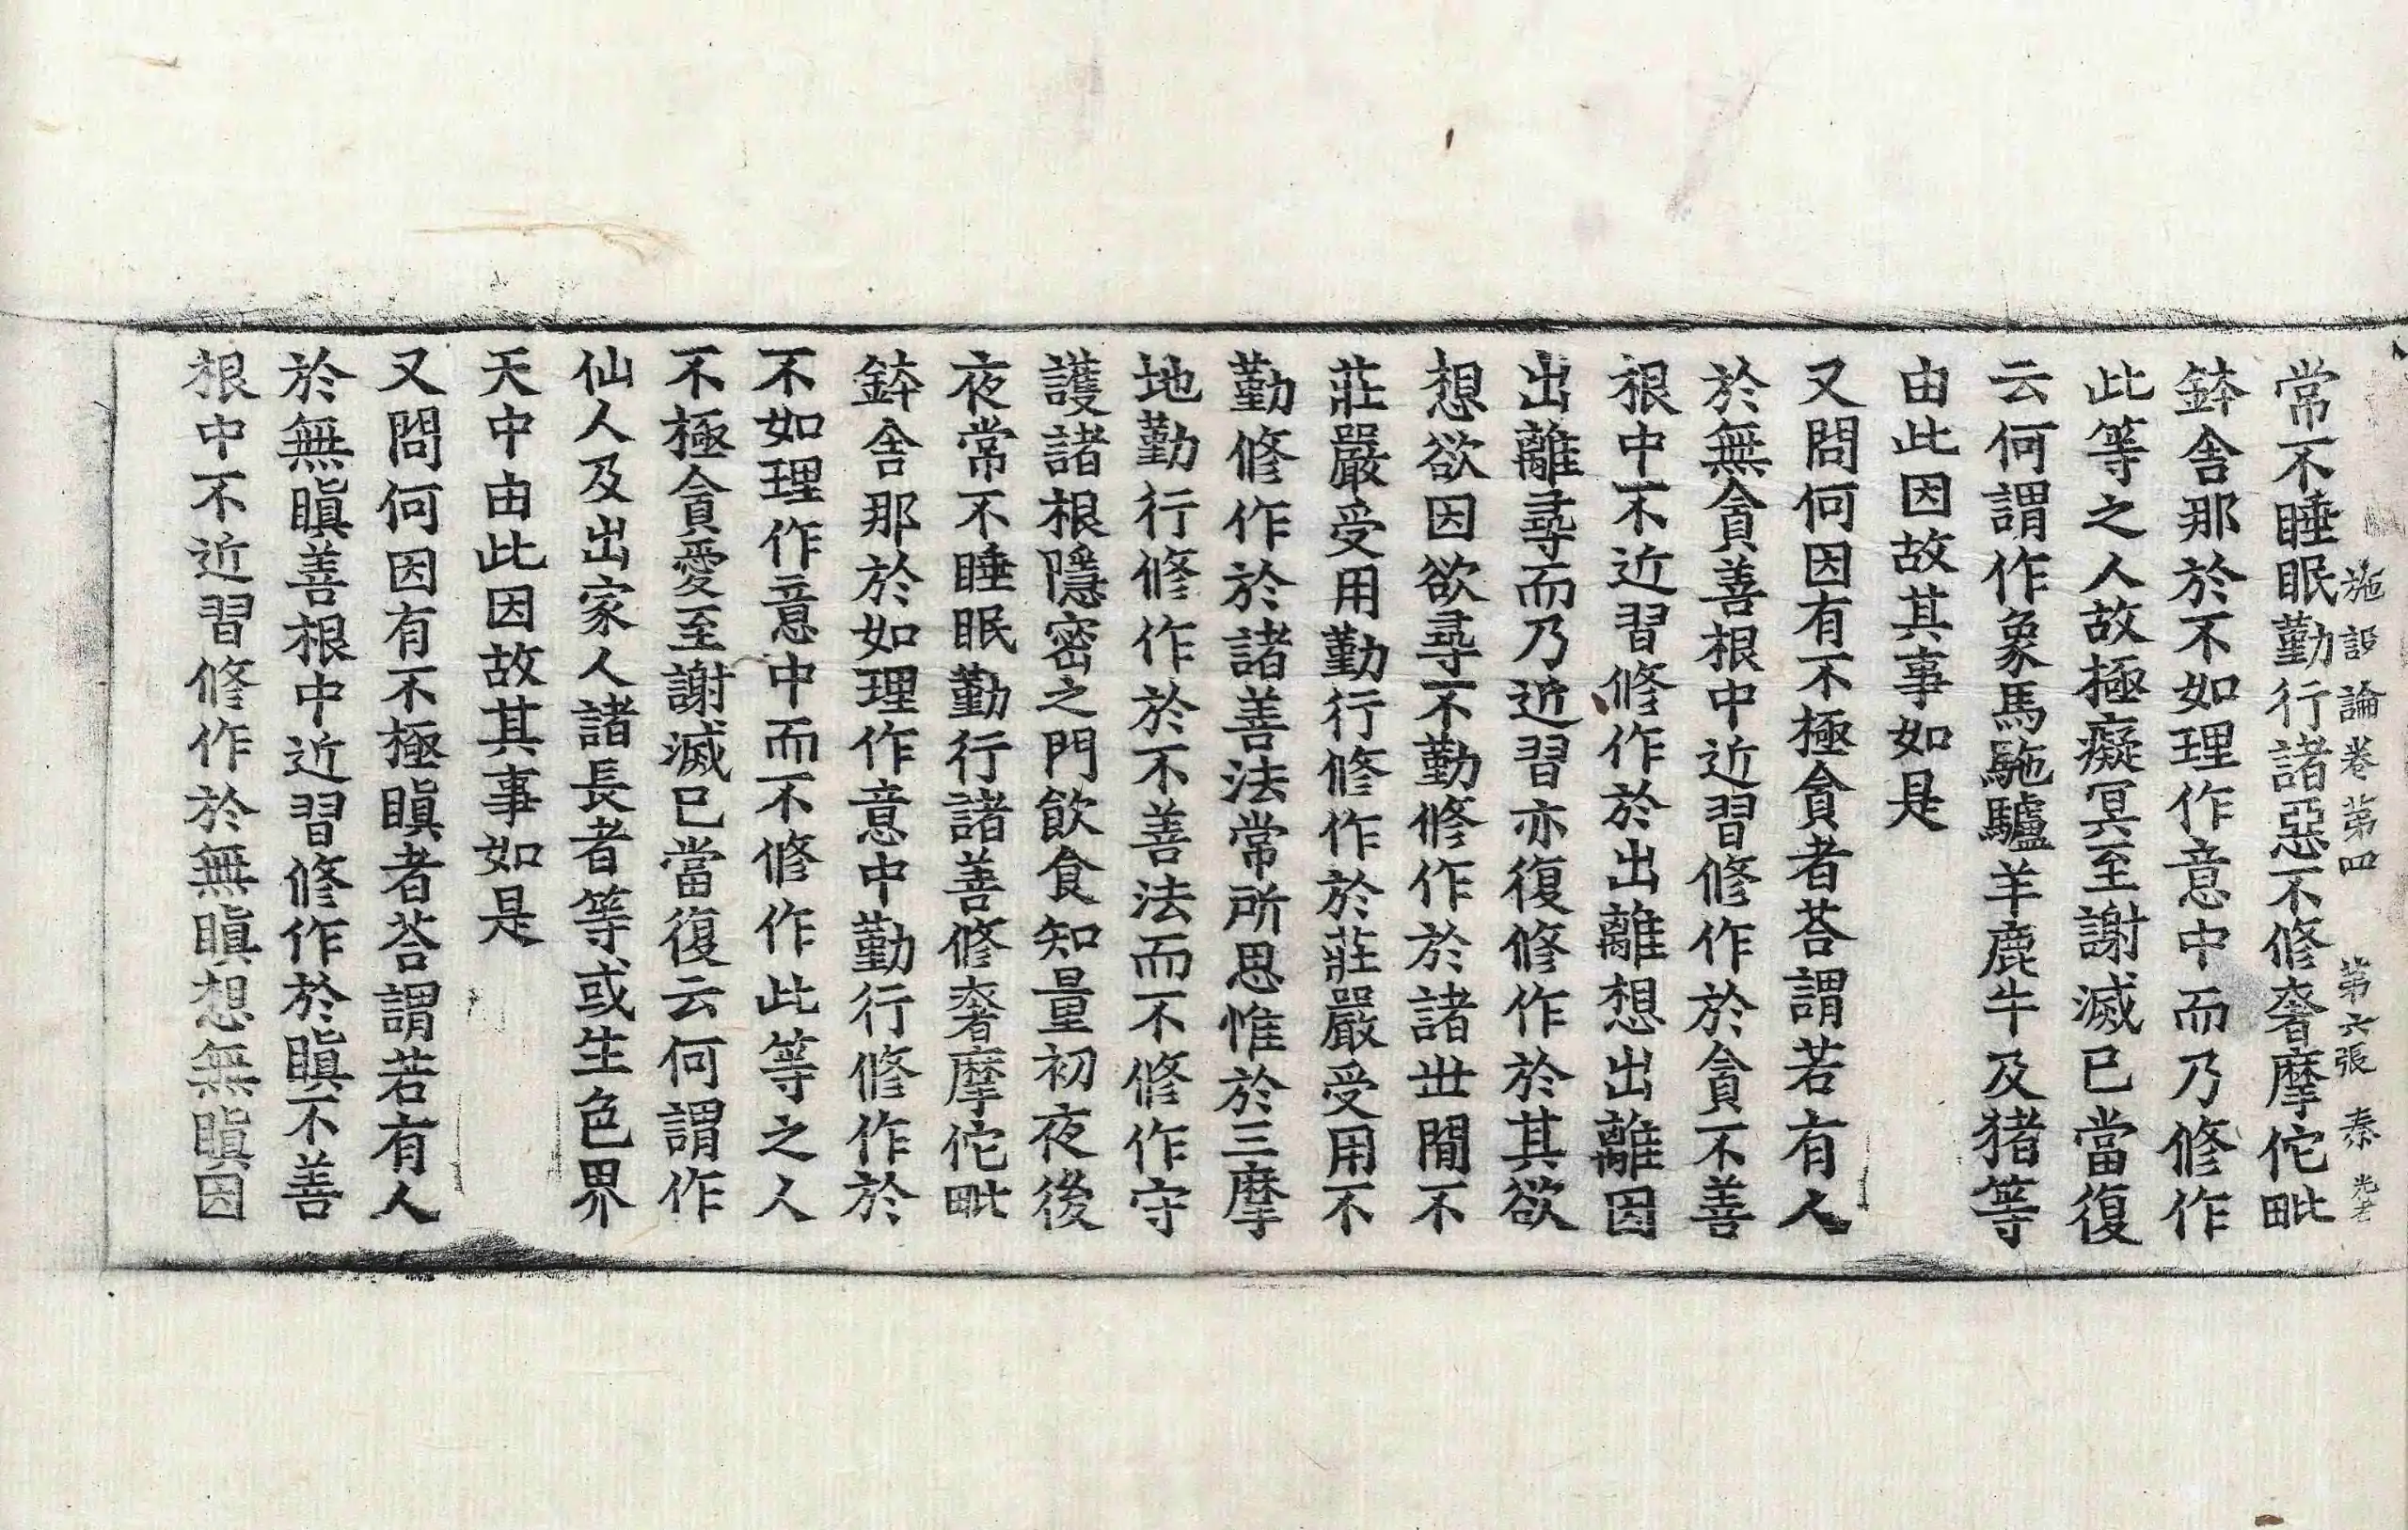 施設論卷第四 第六張 秦
常不睡眠勤行諸惡不修奢摩佗毗
鉢舍那於不如理作意中而乃修作
此等之人故極癡冥至謝滅已當復
云何謂作象馬駞驢羊鹿牛及猪等
由此因故其事如是
又問何因有不極貪者荅謂若有人
於無貪善根中近習修作於貪不善
根中不近習修作於出離想出離因
出離尋而乃近習亦復修作於其欲
想欲因欲尋不勤修作於諸世間不
莊嚴受用勤行修作於莊嚴受用不
勤修作於諸善法常所思惟於三摩
地勤行修作於不善法而不修作守
護諸根隱密之門飲食知量初夜後
夜常不睡眠勤行諸善修奢摩佗毗
鉢舍那於如理作意中勤行修作於
不如理作意中而不修作此等之人
不極貪愛至謝滅已當復云何謂作
仙人及出家人諸長者等或生色界
天中由此因故其事如是
又問何因有不極瞋者荅謂若有人
於無瞋善根中近習修作於瞋不善
根中不近習修作於無瞋想無瞋因